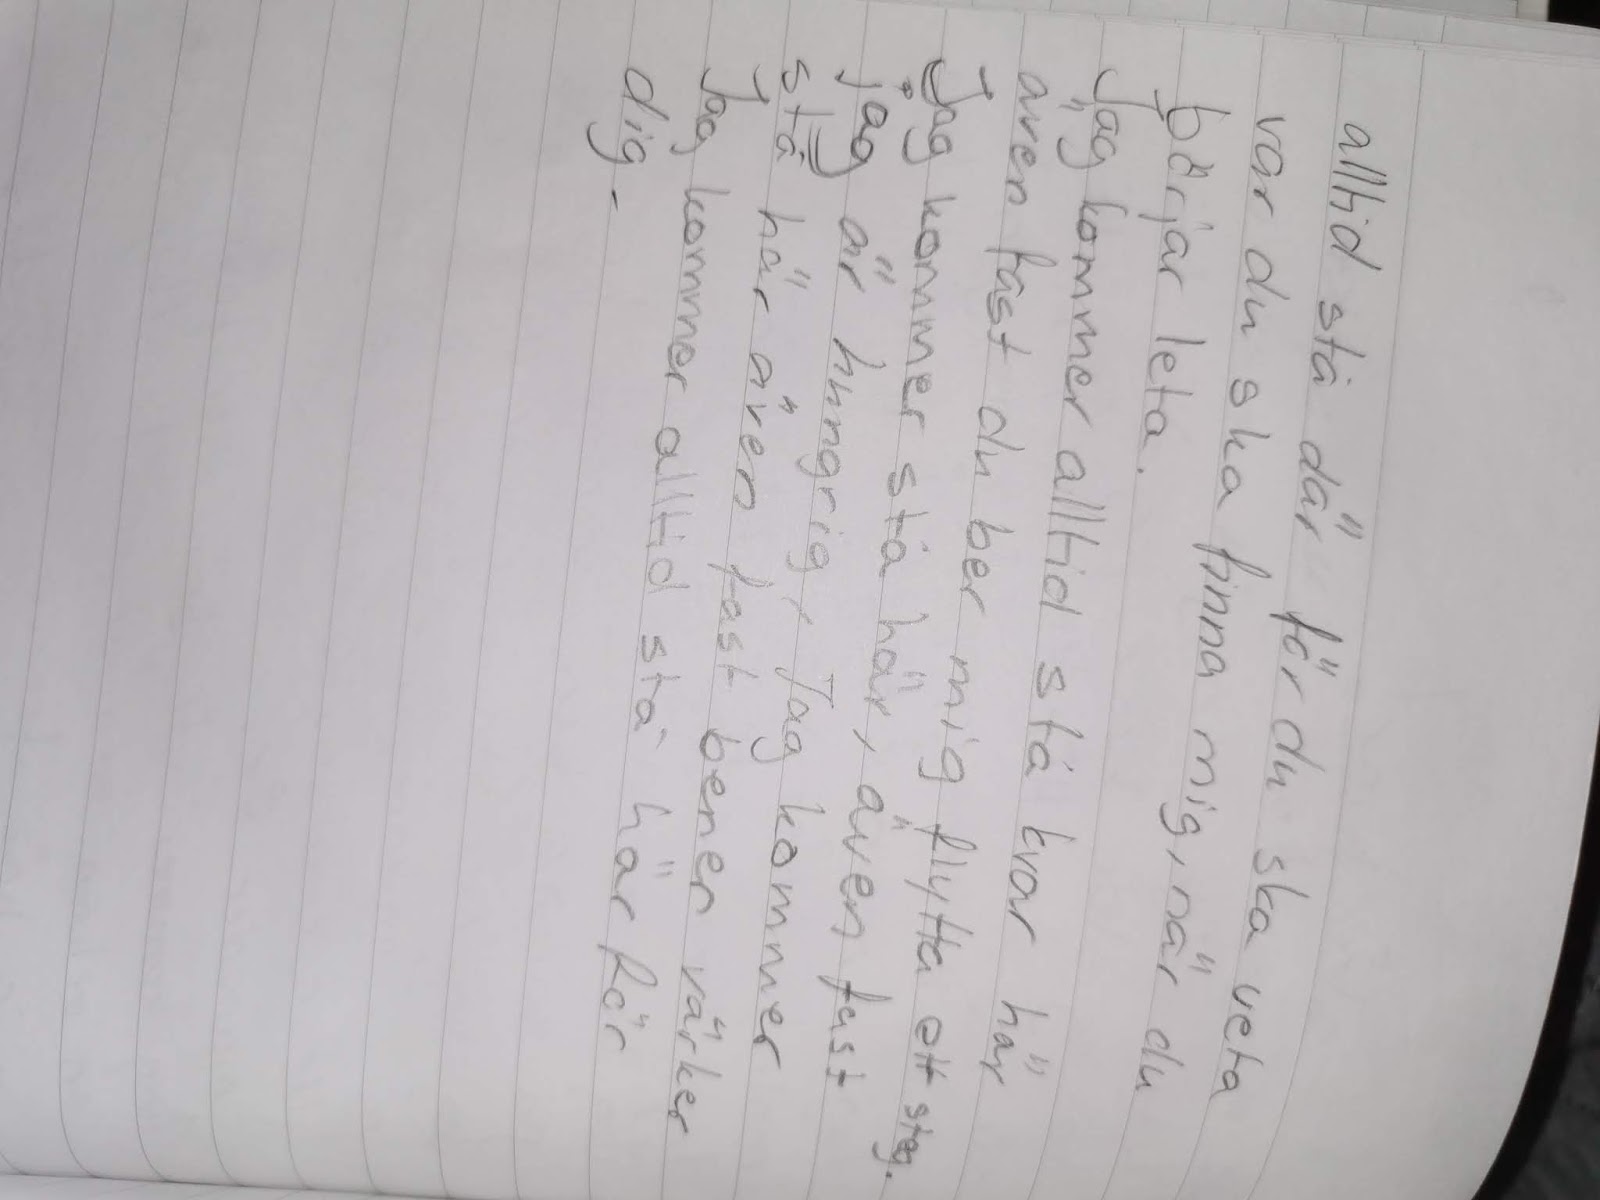 alltid stå där för du ska veta
var du ska finna mig, när du
börjar leta.
Jag kommer alltid stå kvar här
även fast du ber mig flytta ett steg.
Jag kommer stå här, även fast
jag är hungrig, Jag kommer
stå här även fast benen värker
Jag kommer alltid stå här för
dig.